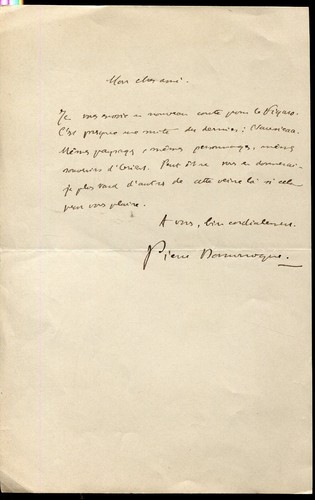 Mon cher ami.
Je vous envoie un nouveau conte pour le Figaro.
C'est presque une suite du dernier;
Même paysage, mêmes personnages, mêmes
souvenirs d'Orient. Peut être vous en donnerai-
je plus tard d'autres de cette veine là si cela
peut vous plaire.
A vous, bien cordialement.
Pierre Dominique.